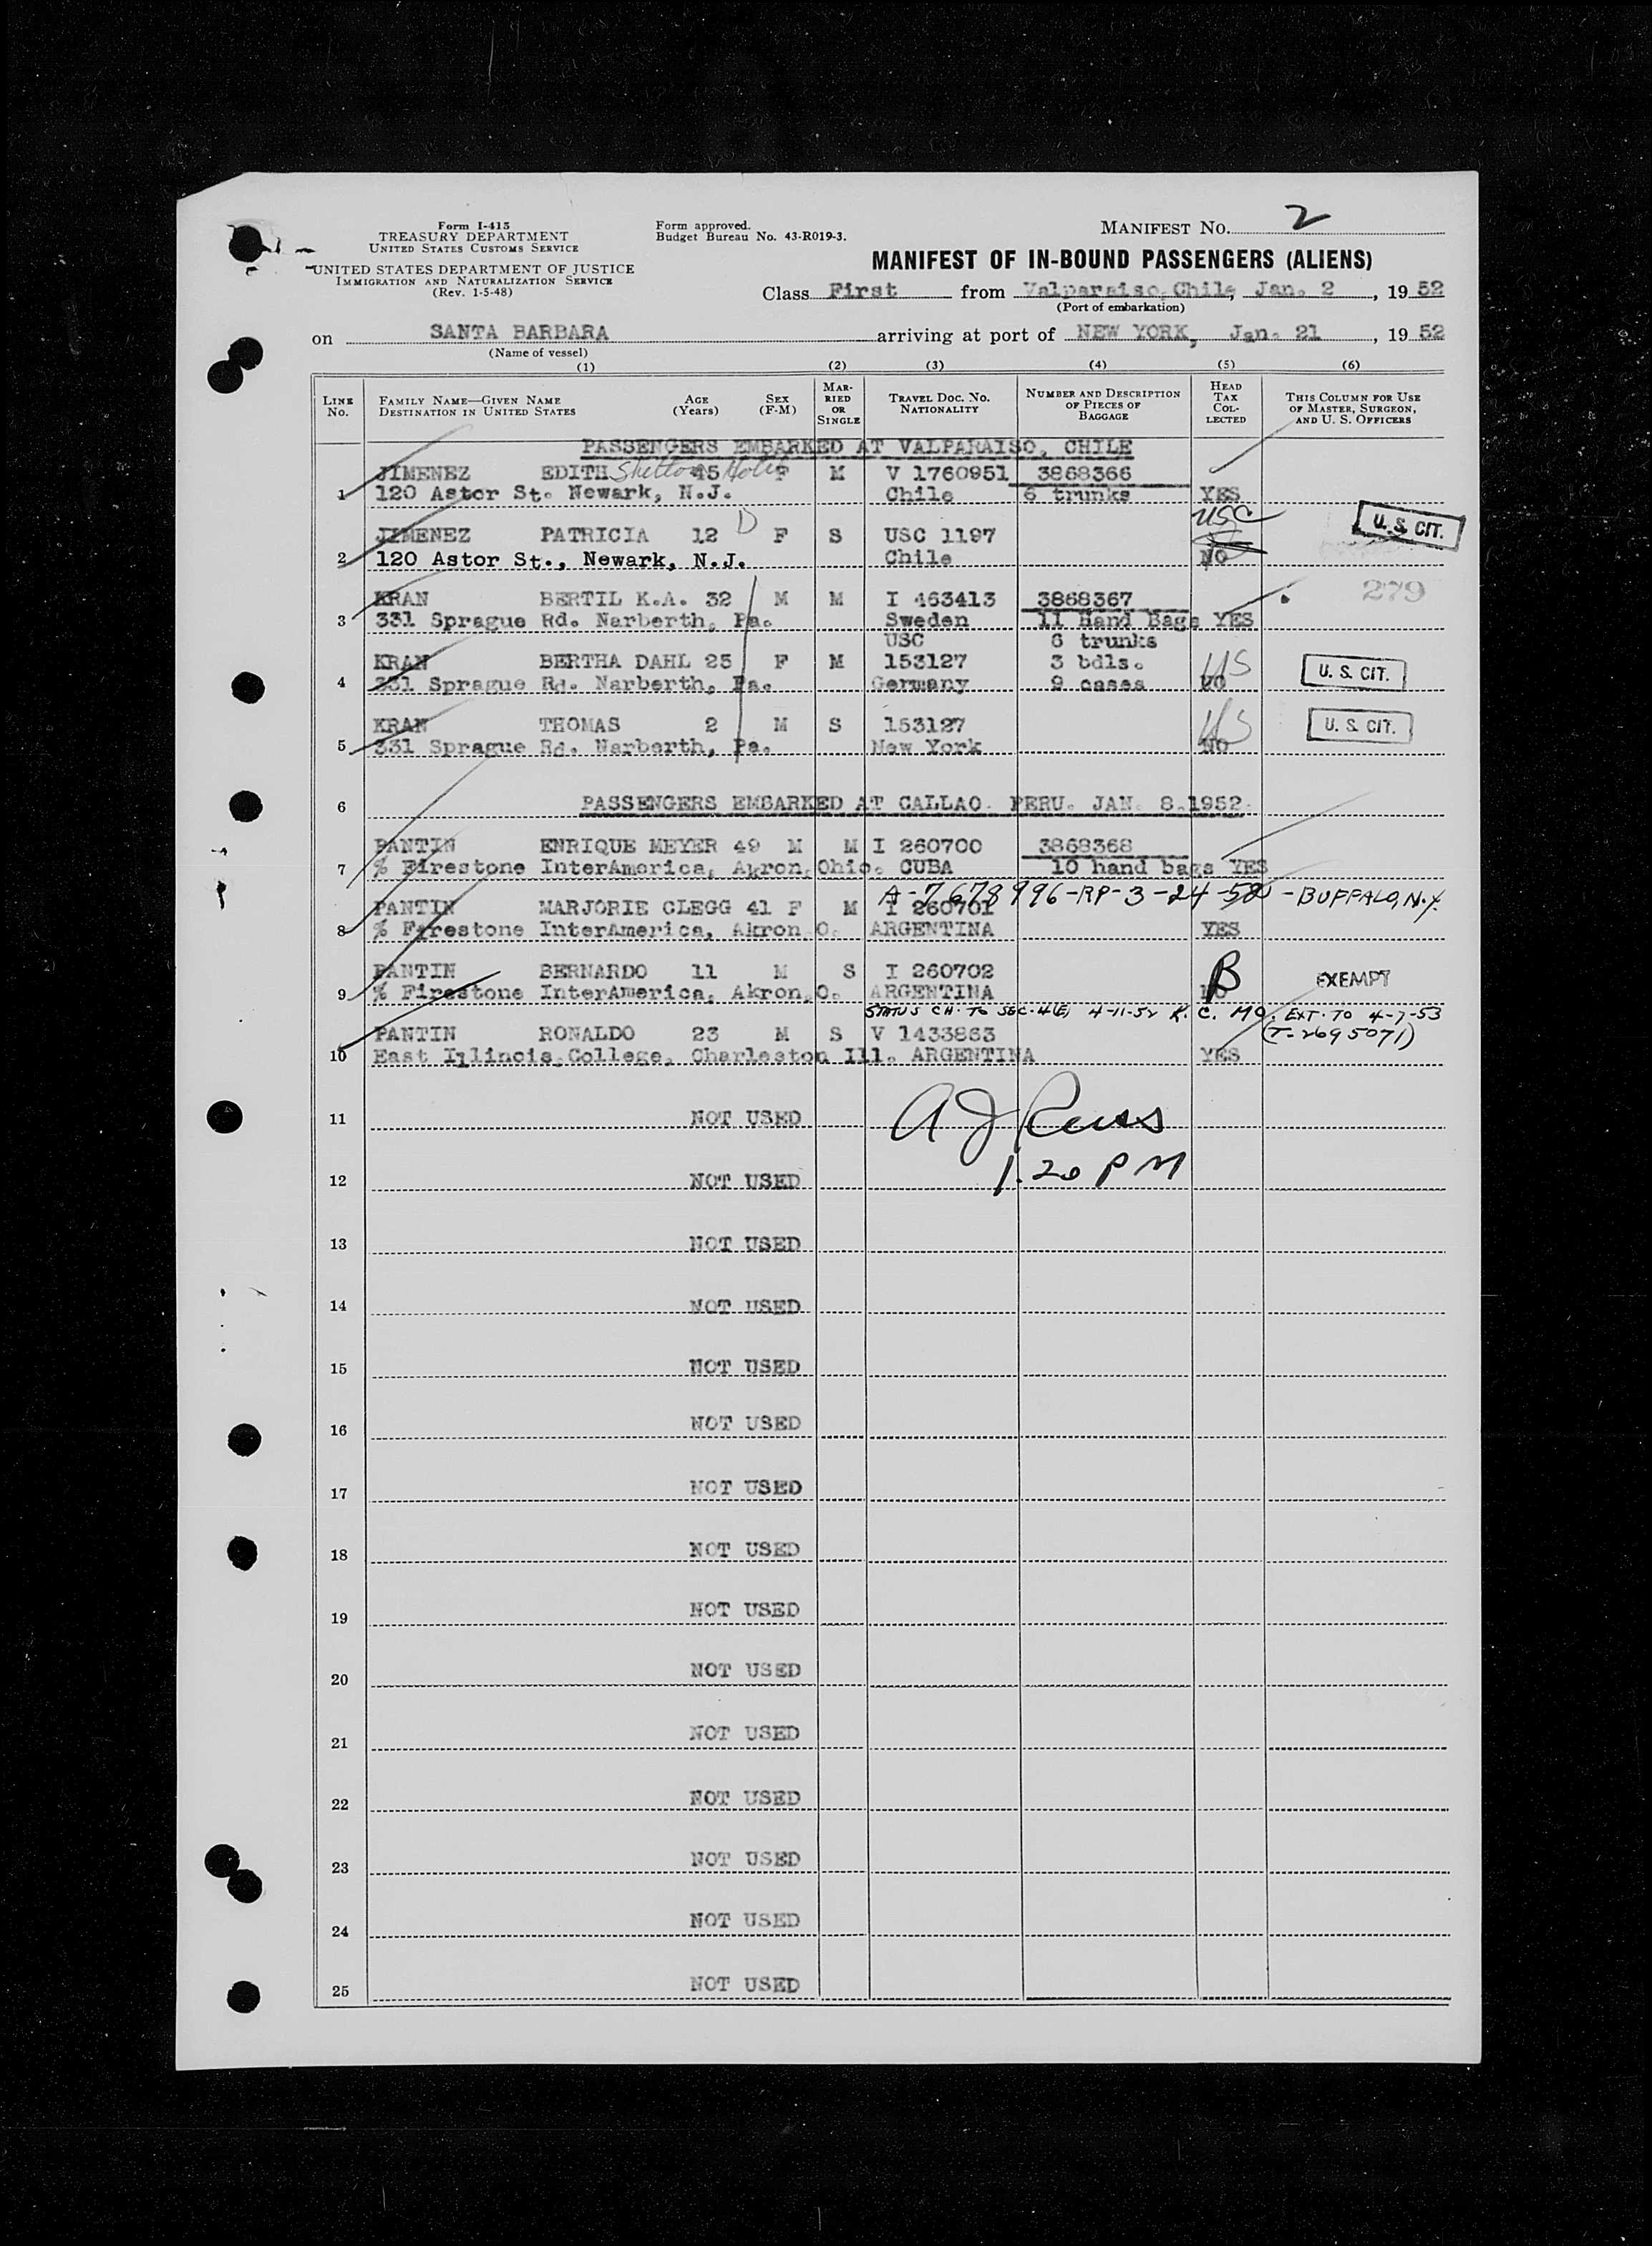 Form I-415
TREASURY DEPARTMENT
UNITED STATES CUSTOMS SERVICE
UNITED STATES DEPARTMENT OF JUSTICE
IMMIGRATION AND NATURALIZATION SERVICE
(Rev. 1-5-48)
Form approved.
Budget Bureau No. 43-R019-3.
MANIFEST NO. 2
MANIFEST OF IN-BOUND PASSENGERS (ALIENS)
Class First from Valparaiso, Chile, Jan. 2, 19 52
(Port of embarkation)
on SANTA BARBARA arriving at port of NEW YORK, Jan. 21, 19 52
(Name of vessel)
(1) (2) (3) (4) (5) (6)
LINE No. FAMILY NAME—GIVEN NAME DESTINATION IN UNITED STATES AGE (Years) SEX (F-M) MARRIED OR SINGLE TRAVEL DOC. NO. NATIONALITY NUMBER AND DESCRIPTION OF PIECES OF BAGGAGE HEAD TAX COLLECTED THIS COLUMN FOR USE OF MASTER, SURGEON, AND U. S. OFFICERS
PASSENGERS EMBARKED AT VALPARAISO, CHILE
JIMENEZ EDITH Shelton 45 Hotel F M V 1760951 3868366
1 120 Astor St. Newark, N.J. Chile 6 trunks YES
USC
JIMENEZ PATRICIA 12 D F S USC 1197 U. S. CIT.
2 120 Astor St., Newark, N.J. Chile NO
KRAN BERTIL K.A. 32 M M I 463413 3868367 279
3 331 Sprague Rd. Narberth, Pa. Sweden 11 Hand Bags YES
USC 6 trunks
KRAN BERTHA DAHL 25 F M 153127 3 bdls. US U. S. CIT.
4 331 Sprague Rd. Narberth, Pa. Germany 9 cases NO
KRAN THOMAS 2 M S 153127 US U. S. CIT.
5 331 Sprague Rd. Narberth, Pa. New York NO
6 PASSENGERS EMBARKED AT CALLAO. PERU. JAN. 8.1952.
PANTIN ENRIQUE MEYER 49 M M I 260700 3868368
7 % Firestone InterAmerica, Akron, Ohio. CUBA 10 hand bags YES
A-7678996-RP-3-24-52-BUFFALO, N.Y.
PANTIN MARJORIE CLEGG 41 F M I 260701
8 % Firestone InterAmerica, Akron, O. ARGENTINA YES
PANTIN BERNARDO 11 M S I 260702 B EXEMPT
9 % Firestone InterAmerica, Akron, O. ARGENTINA NO
STATUS CH. TO SEC. 4(E) 4-11-52 K. C. MO. EXT. TO 4-7-53
PANTIN RONALDO 23 M S V 1433863 (T-2695071)
10 East Illinois College, Charleston Ill. ARGENTINA YES
11 NOT USED
12 NOT USED 1.20 PM
13 NOT USED
14 NOT USED
15 NOT USED
16 NOT USED
17 NOT USED
18 NOT USED
19 NOT USED
20 NOT USED
21 NOT USED
22 NOT USED
23 NOT USED
24 NOT USED
25 NOT USED